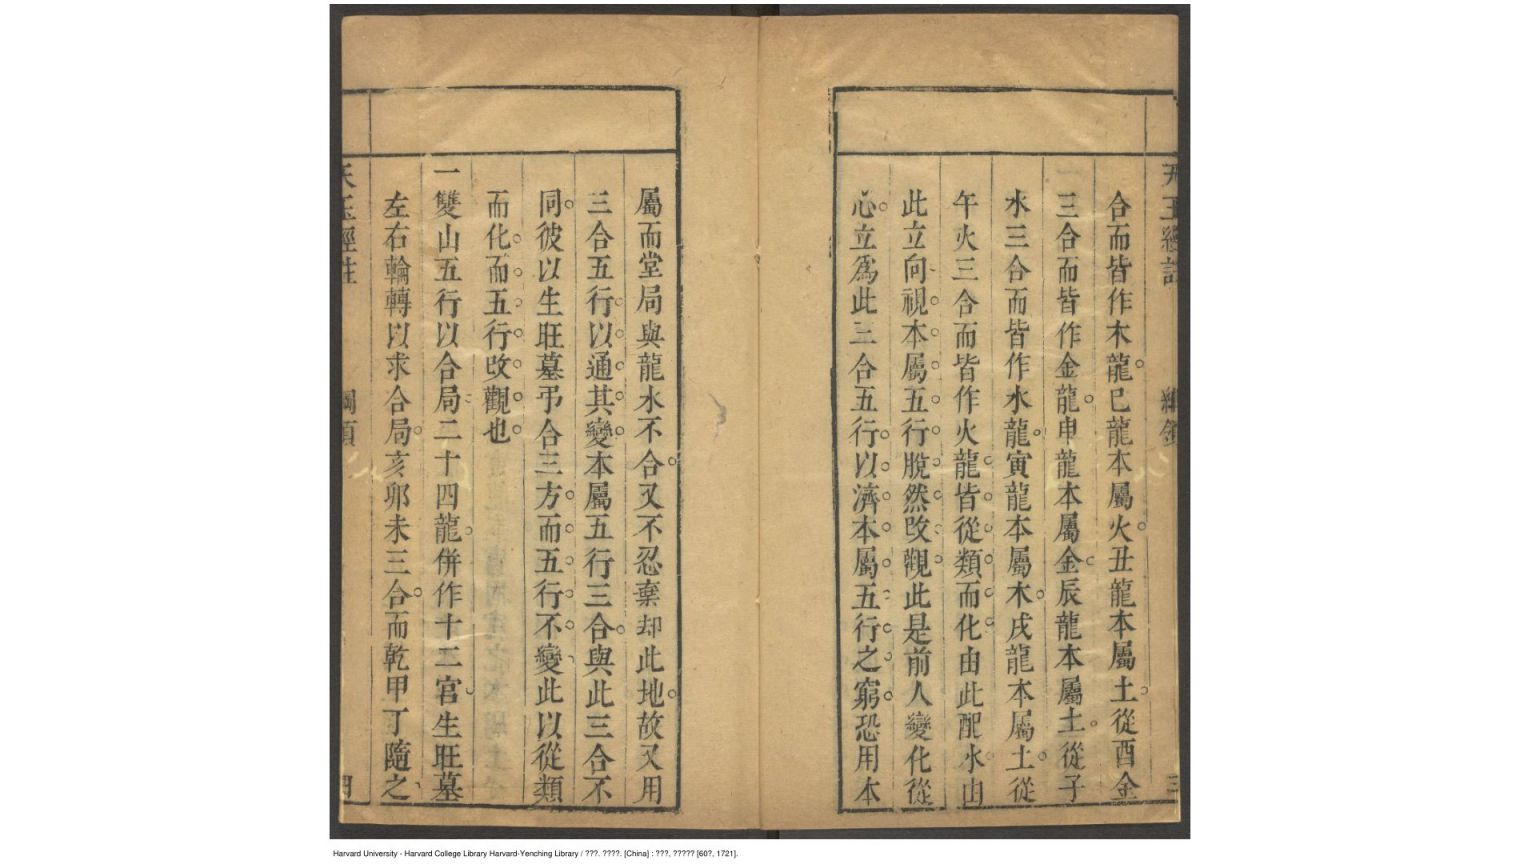 合而皆作木龍巳龍本屬火丑龍本屬土從酉金
三合而皆作金龍申龍本屬金辰龍本屬土從子
水三合而皆作水龍寅龍本屬木戌龍本屬土從
午火三合而皆作火龍皆從類而化由此配水由
此立向視本屬五行脫然改觀此是前人變化從
心立爲此三合五行以濟本屬五行之窮恐用本
屬而堂局與龍水不合又不忍棄却此地故又用
三合五行以通其變本屬五行三合與此三合不
同彼以生旺墓弔合三方而五行不變此以從類
而化而五行改觀也
一雙山五行以合局二十四龍併作十二宮生旺墓
左右輪轉以求合局亥卯未三合而乾甲丁隨之
Harvard University - Harvard College Library Harvard-Yenching Library / ???. ????. [China] : ???, ????? [60?, 1721].